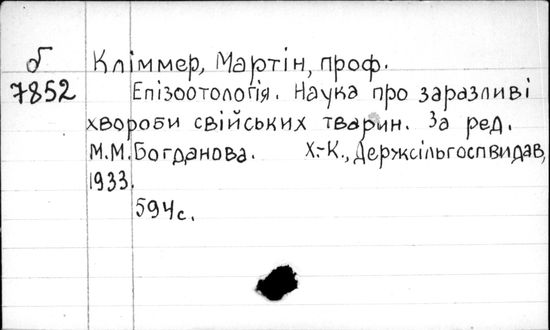 б Кліммер, Мартін, проф.
7852 Епізоотологія. Наука про заразливі
хвороби свійських тварин. За ред.
М.М. Богданова. Х.-К., Держсільгоспвидав,
1933.
594с.